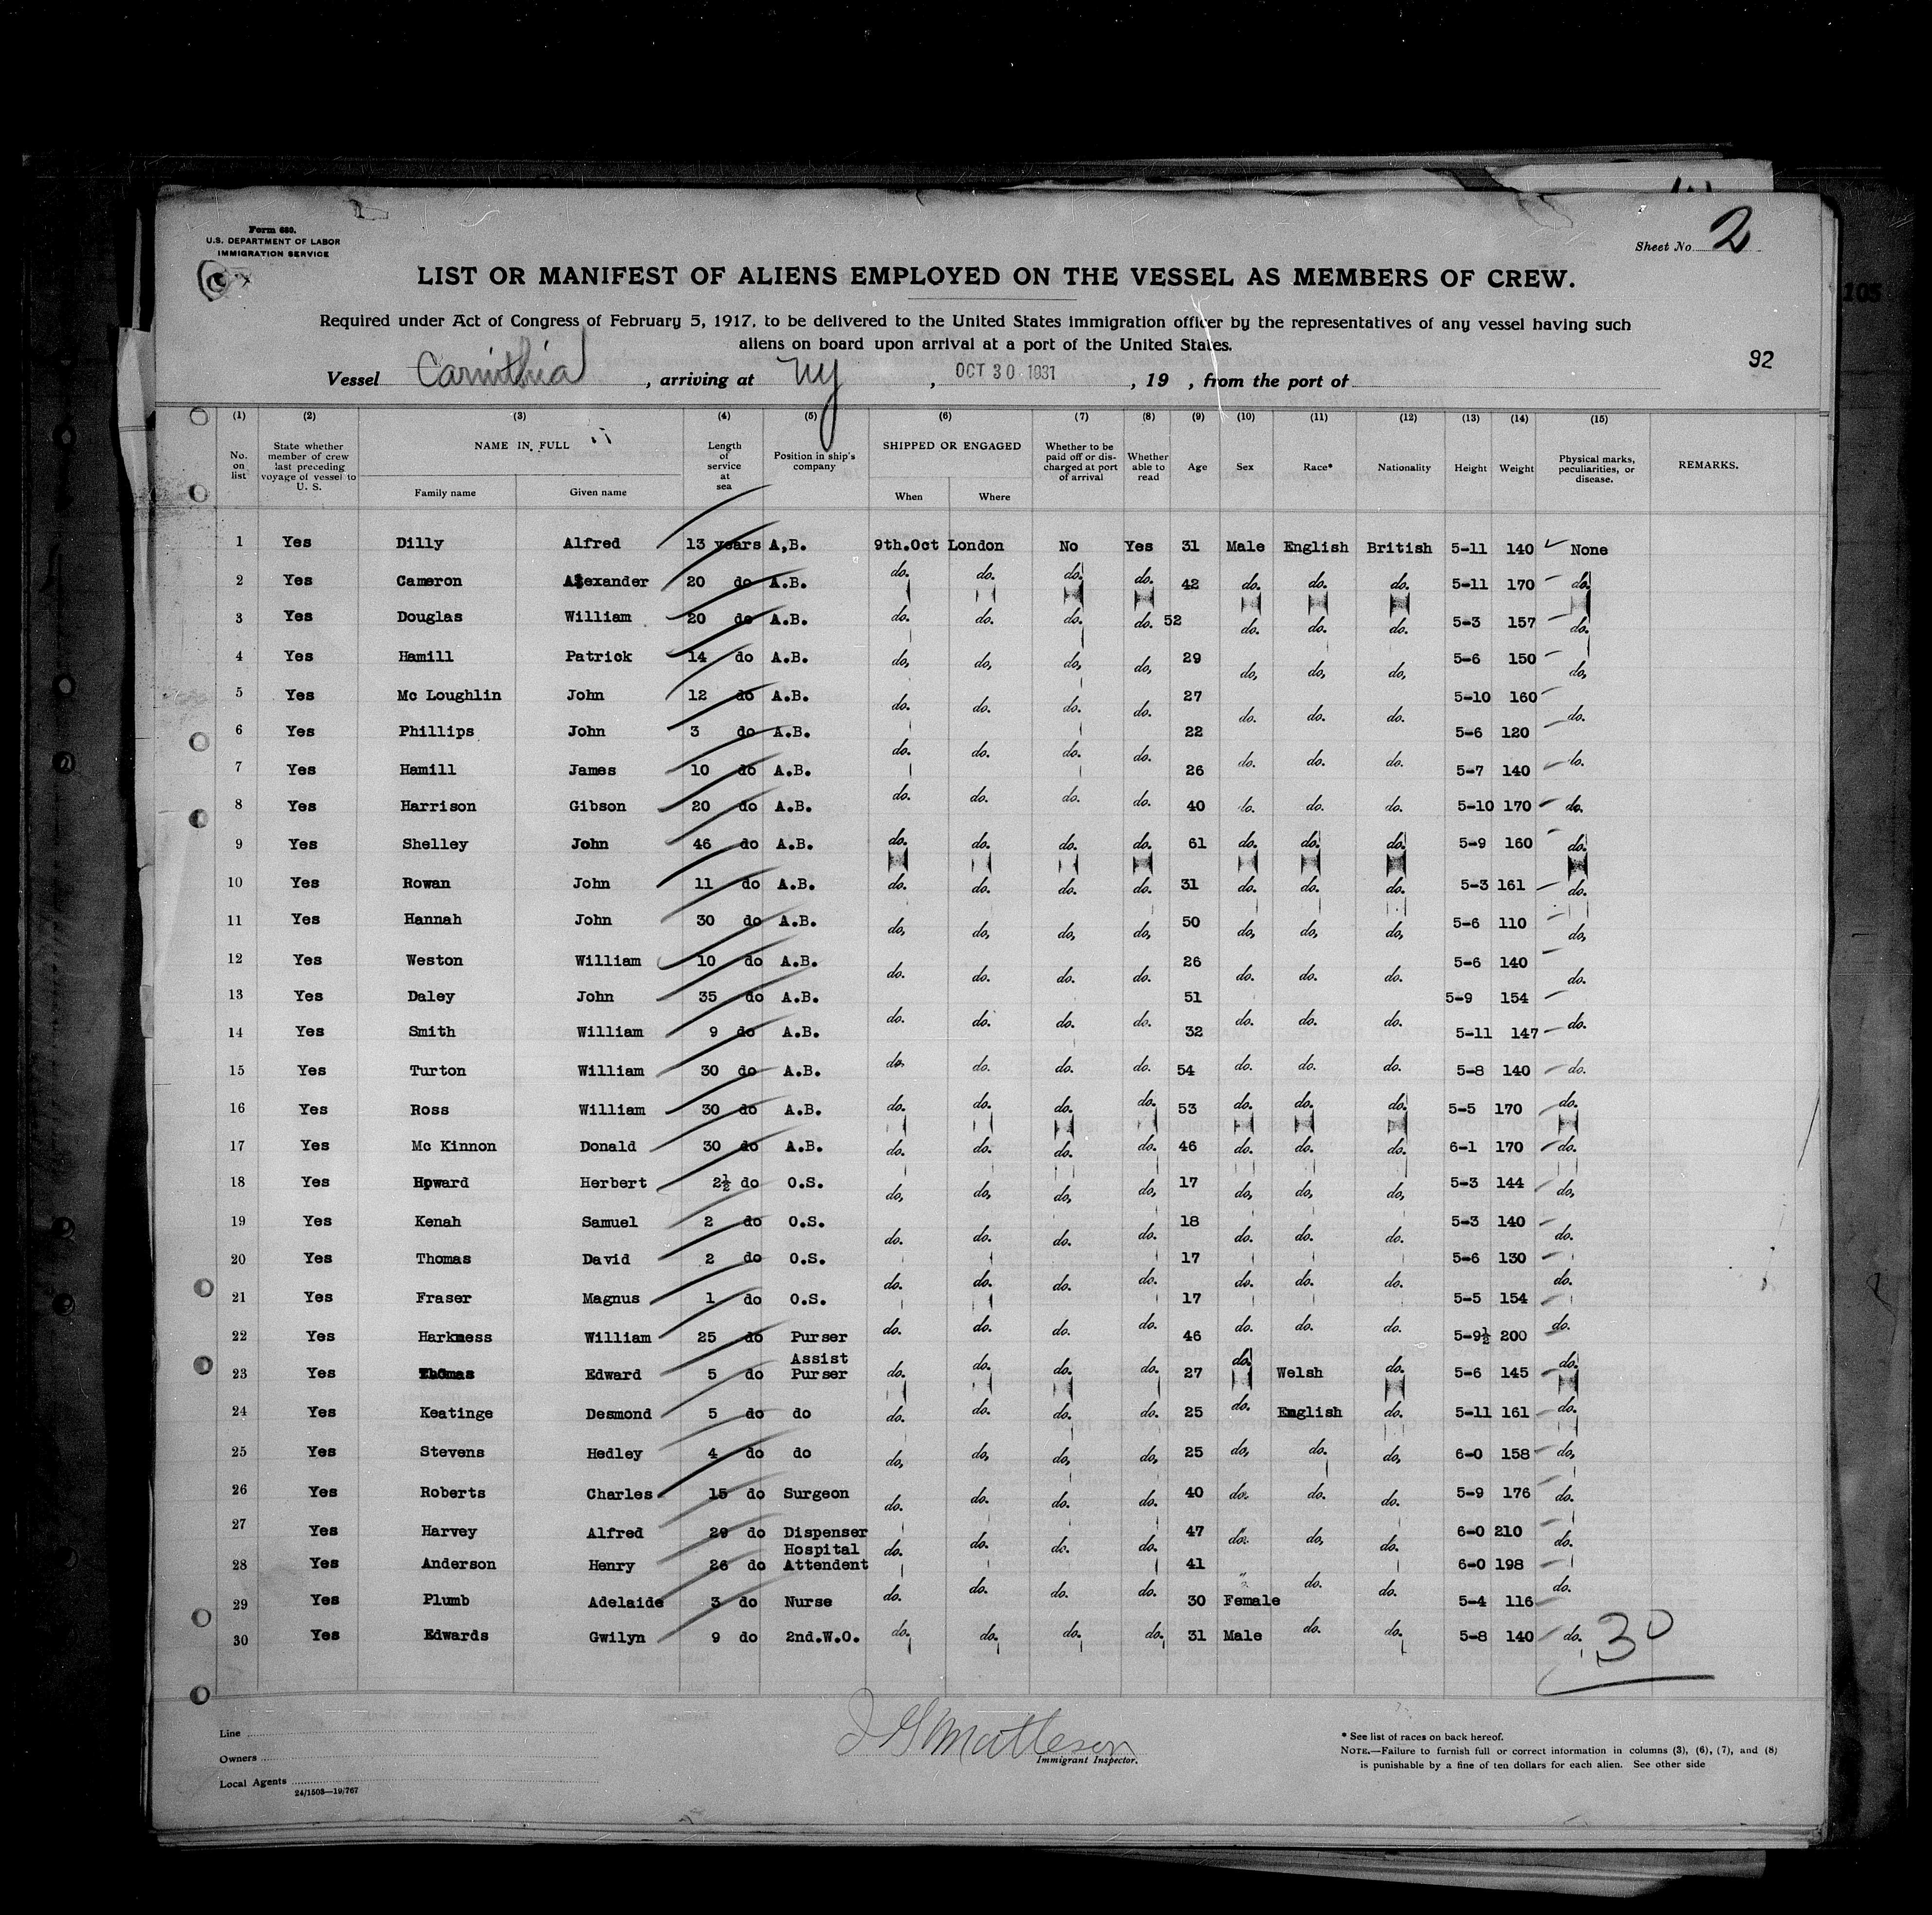 Form 680.
U.S. DEPARTMENT OF LABOR
IMMIGRATION SERVICE
Sheet No. 2
LIST OR MANIFEST OF ALIENS EMPLOYED ON THE VESSEL AS MEMBERS OF CREW.
Required under Act of Congress of February 5, 1917, to be delivered to the United States immigration officer by the representatives of any vessel having such
aliens on board upon arrival at a port of the United States.
105
92
Vessel Carinthia, arriving at NY, OCT 30 1931, 19 , from the port of
(1) (2) (3) (4) (5) (6) (7) (8) (9) (10) (11) (12) (13) (14) (15)
No. on list State whether member of crew last preceding voyage of vessel to U. S. NAME IN FULL Family name Given name Length of service at sea Position in ship's company SHIPPED OR ENGAGED When Where Whether to be paid off or discharged at port of arrival Whether able to read Age Sex Race* Nationality Height Weight Physical marks, peculiarities, or disease. REMARKS.
1 Yes Dilly Alfred 13 years A,B. 9th.Oct London No Yes 31 Male English British 5-11 140 None
2 Yes Cameron Alexander 20 do A.B. do. do. do. do. 42 do. do. do. 5-11 170 do.
3 Yes Douglas William 20 do A.B. do. do. do. do. 52 do. do. do. 5-3 157 do.
4 Yes Hamill Patrick 14 do A.B. do, do, do, do, 29 do, do, do, 5-6 150 do,
5 Yes Mc Loughlin John 12 do A.B. do. do. do. do. 27 do. do. do. 5-10 160 do.
6 Yes Phillips John 3 do A.B. do. do. do. do. 22 do. do. do. 5-6 120 do.
7 Yes Hamill James 10 do A.B. do. do. do. do. 26 do. do. do. 5-7 140 do.
8 Yes Harrison Gibson 20 do A.B. do. do. do. do. 40 do. do. do. 5-10 170 do.
9 Yes Shelley John 46 do A.B. do. do. do. do. 61 do. do. do. 5-9 160 do.
10 Yes Rowan John 11 do A.B. do. do. do. do. 31 do. do. do. 5-3 161 do.
11 Yes Hannah John 30 do A.B. do, do, do, do, 50 do, do, do, 5-6 110 do,
12 Yes Weston William 10 do A.B. do. do. do. do. 26 do. do. do. 5-6 140 do.
13 Yes Daley John 35 do A.B. do. do. do. do. 51 do. do. do. 5-9 154 do.
14 Yes Smith William 9 do A.B. do. do. do. do. 32 do. do. do. 5-11 147 do.
15 Yes Turton William 30 do A.B. do. do. do. do. 54 do. do. do. 5-8 140 do.
16 Yes Ross William 30 do A.B. do. do. do. do. 53 do. do. do. 5-5 170 do.
17 Yes Mc Kinnon Donald 30 do A.B. do. do. do. do. 46 do. do. do. 6-1 170 do.
18 Yes Howard Herbert 2½ do O.S. do, do, do, do, 17 do, do, do, 5-3 144 do,
19 Yes Kenah Samuel 2 do O.S. do. do. do. do. 18 do. do. do. 5-3 140 do.
20 Yes Thomas David 2 do O.S. do. do. do. do. 17 do. do. do. 5-6 130 do.
21 Yes Fraser Magnus 1 do O.S. do. do. do. do. 17 do. do. do. 5-5 154 do.
22 Yes Harkness William 25 do Purser do. do. do. do. 46 do. do. do. 5-9½ 200 do.
23 Yes Thomas Edward 5 do Assist Purser do. do. do. do. 27 do. Welsh do. 5-6 145 do.
24 Yes Keatinge Desmond 5 do do do. do. do. do. 25 do. English do. 5-11 161 do.
25 Yes Stevens Hedley 4 do do do, do, do, do, 25 do, do. do, 6-0 158 do,
26 Yes Roberts Charles 15 do Surgeon do. do. do. do. 40 do. do. do. 5-9 176 do.
27 Yes Harvey Alfred 29 do Dispenser do. do. do. do. 47 do. do, do. 6-0 210 do.
28 Yes Anderson Henry 26 do Hospital Attendent 41 " 6-0 198
29 Yes Plumb Adelaide 3 do Nurse do. do. do. do. 30 Female do. do. 5-4 116 do.
30 Yes Edwards Gwilyn 9 do 2nd.W.O. do. do. do. do. 31 Male do. do. 5-8 140 do.
30
Line
Owners
Local Agents
24/1503—19/767
J G Matteson
Immigrant Inspector.
* See list of races on back hereof.
NOTE.—Failure to furnish full or correct information in columns (3), (6), (7), and (8)
is punishable by a fine of ten dollars for each alien. See other side